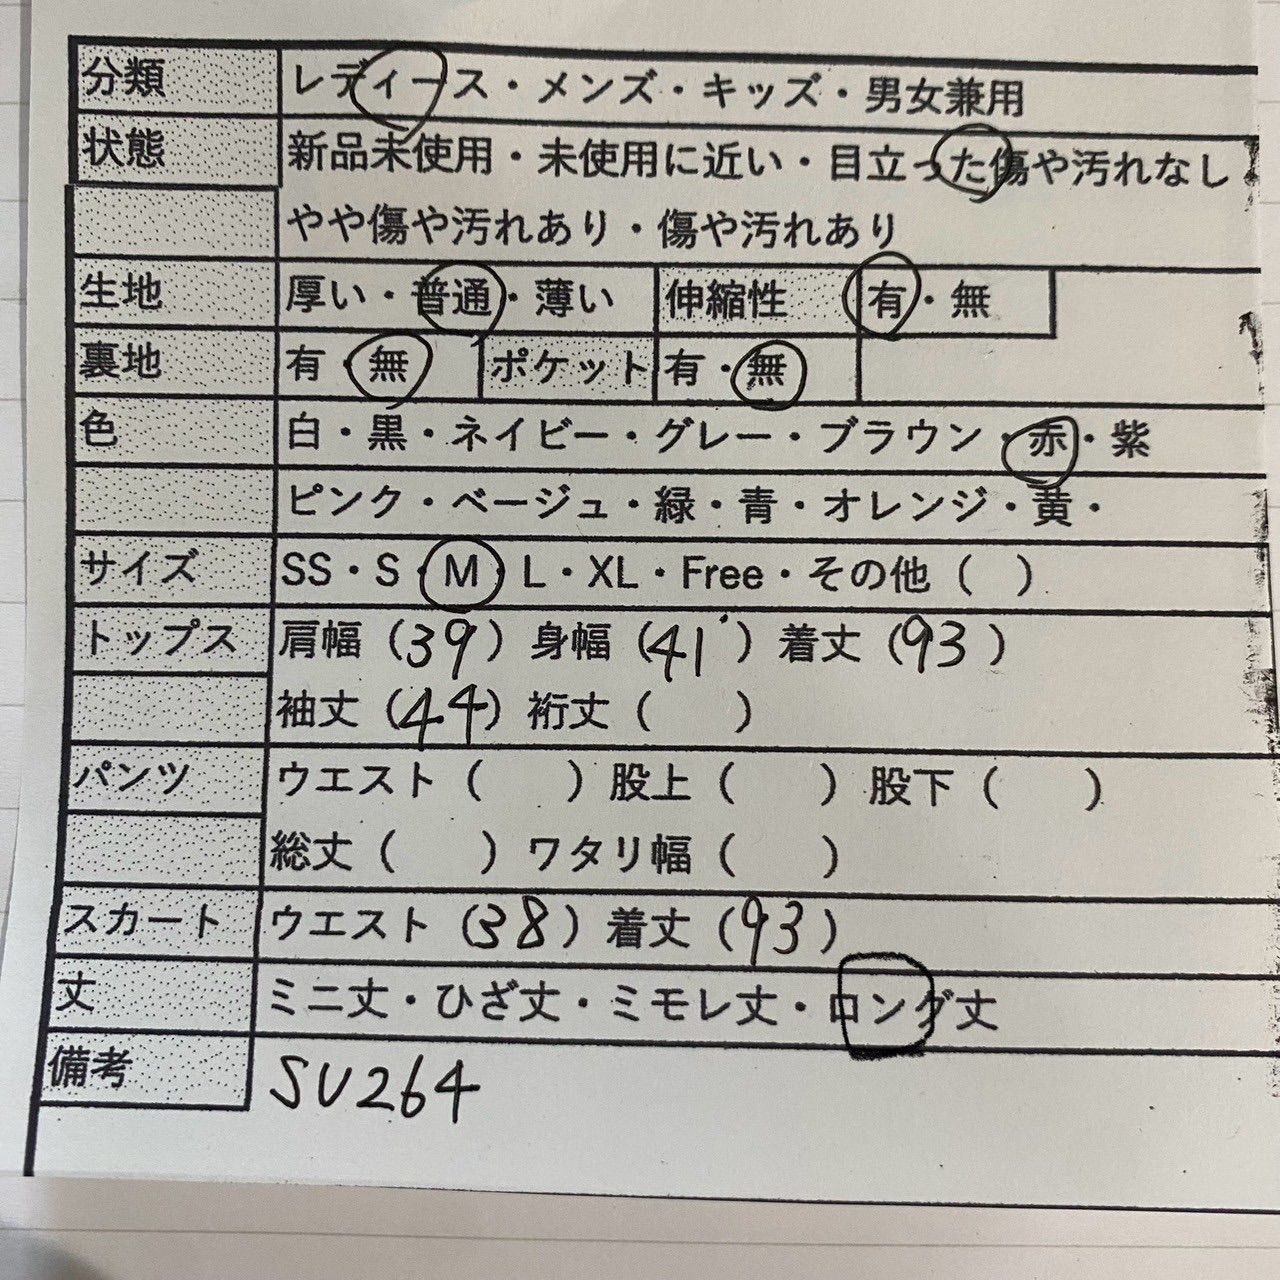 分類 レディース・メンズ・キッズ・男女兼用
状態 新品未使用・未使用に近い・目立った傷や汚れなし
やや傷や汚れあり・傷や汚れあり
生地 厚い・普通・薄い 伸縮性 有・無
裏地 有・無 ポケット 有・無
色 白・黒・ネイビー・グレー・ブラウン・赤・紫
ピンク・ベージュ・緑・青・オレンジ・黄・
サイズ SS・S・M・L・XL・Free・その他（ ）
トップス 肩幅（39）身幅（41）着丈（93）
袖丈（44）裄丈（ ）
パンツ ウエスト（ ）股上（ ）股下（ ）
総丈（ ）ワタリ幅（ ）
スカート ウエスト（38）着丈（93）
丈 ミニ丈・ひざ丈・ミモレ丈・ロング丈
備考 SU264